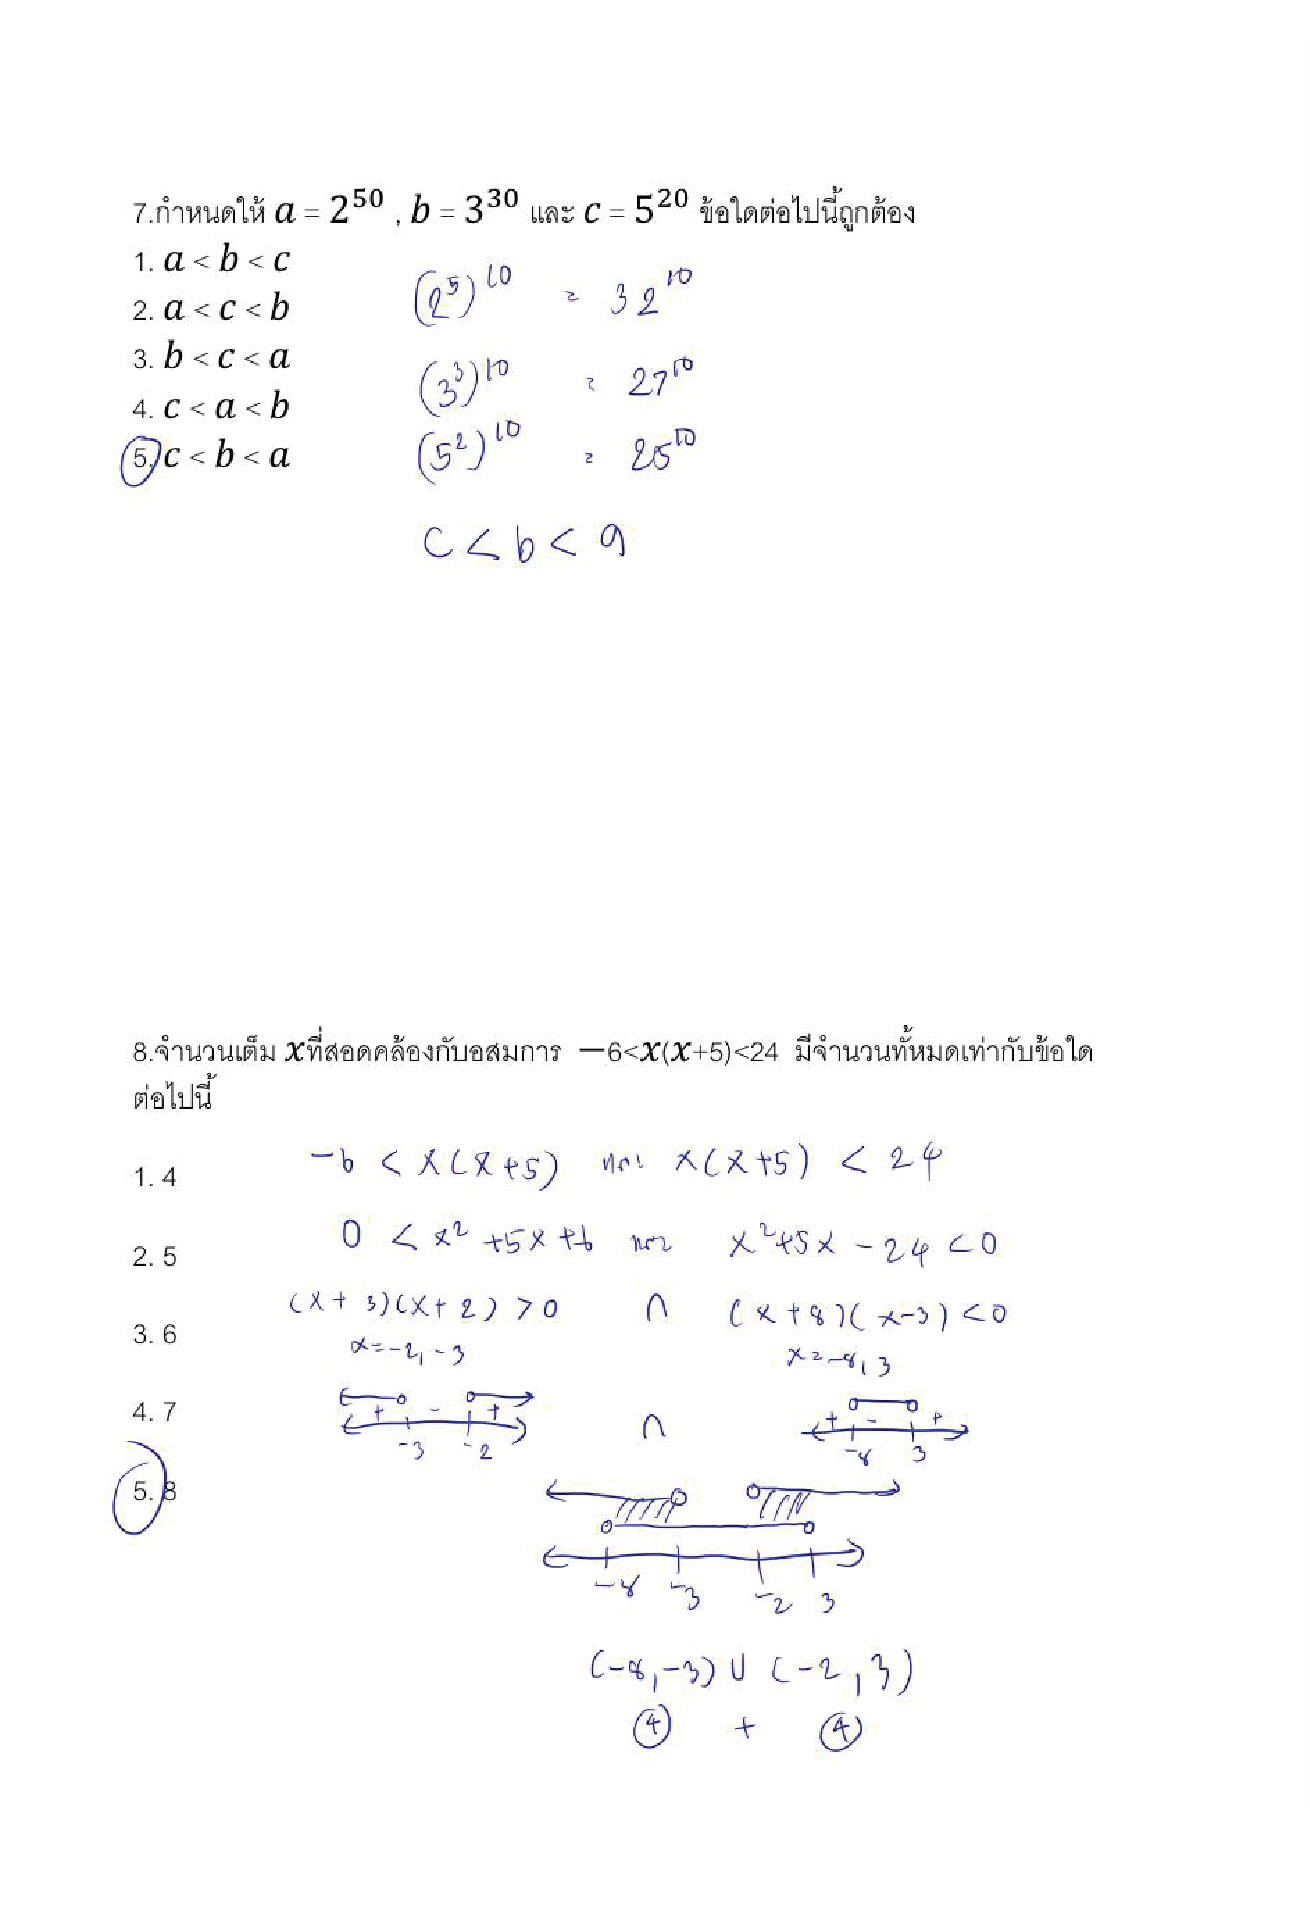 7.กำหนดให้ a = 2^50 , b = 3^30 และ c = 5^20 ข้อใดต่อไปนี้ถูกต้อง
1. a < b < c
2. a < c < b
3. b < c < a
4. c < a < b
5. c < b < a
(2^5)^10 = 32^10
(3^3)^10 = 27^10
(5^2)^10 = 25^10
c < b < a
8.จำนวนเต็ม x ที่สอดคล้องกับอสมการ −6<x(x+5)<24 มีจำนวนทั้งหมดเท่ากับข้อใด
ต่อไปนี้
1. 4
2. 5
3. 6
4. 7
5. 8
-6 < x(x+5) และ x(x+5) < 24
0 < x^2 +5x+6 และ x^2+5x - 24 < 0
(x+3)(x+2) > 0 ∩ (x+8)(x-3) < 0
x=-2,-3 x=-8,3
+ - + + - +
-3 -2 ∩ -8 3
-8 -3 -2 3
(-8,-3) ∪ (-2,3)
4 + 4